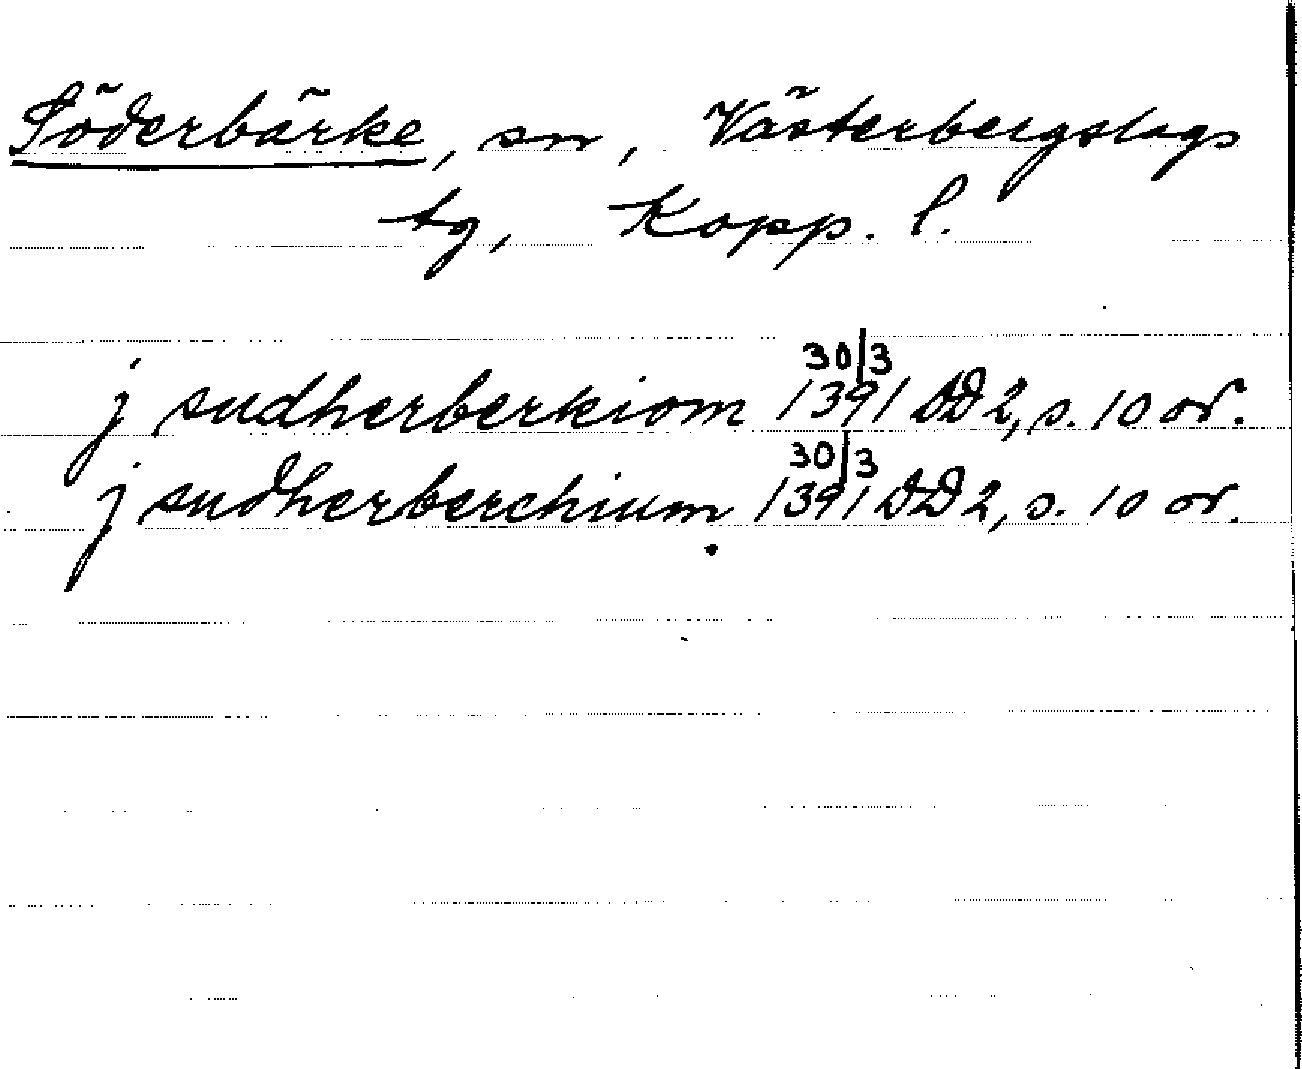 Söderbärke, sn, Västerbergslags
tg, Kopp. l.
j sudherberkiom 30/3 1391 DD 2, s. 10 or.
j sudherberchium 30/3 1391 DD 2, s. 10 or.